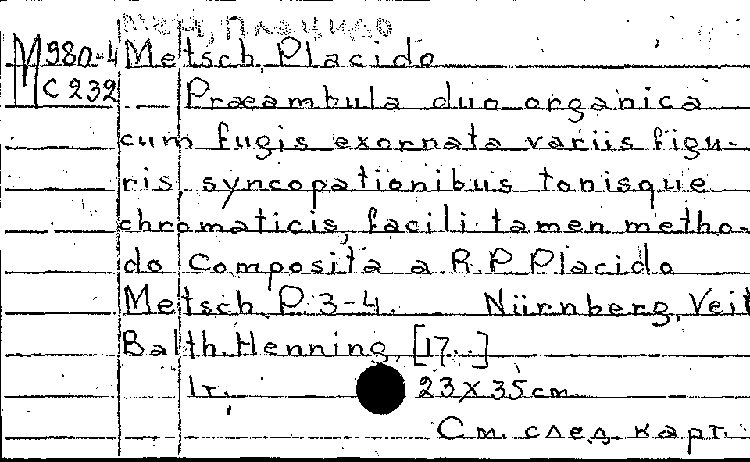 Меч, Плацидо
М 980-4 Metsch, Placido
С 232 Præambula duo organica
cum fugis exornata variis figu-
ris, syncopationibus tonisque
chromaticis, facili tamen metho-
do composita a R.P. Placido
Metsch. P. 3-4. Nürnberg, Veit
Balth. Henning, [17..]
1 т. 23 X 35 cm
См. след. карт.